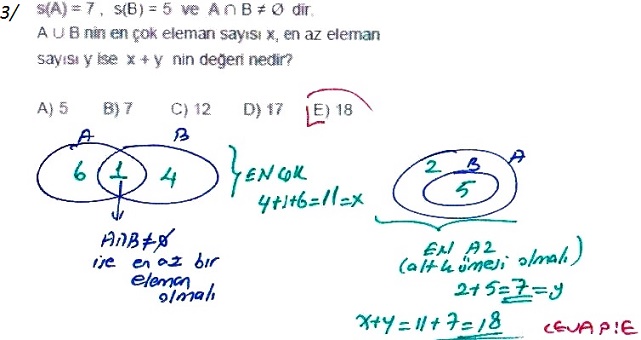 3/ s(A) = 7 , s(B) = 5 ve A ∩ B ≠ Ø dir.
A ∪ B nin en çok eleman sayısı x, en az eleman
sayısı y ise x + y nin değeri nedir?
A) 5 B) 7 C) 12 D) 17 E) 18
A B
6 1 4
EN ÇOK
4+1+6=11=x
A∩B≠∅
ise en az bir
eleman
olmalı
A
2 B
5
EN AZ
(alt kümesi olmalı)
2+5=7=y
x+y=11+7=18
CEVAP:E